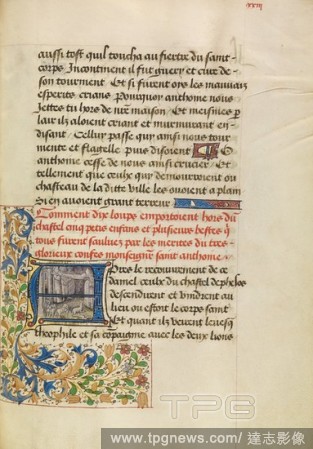 xxiij
aussi tost quil toucha au fiertre du saint
corps Incontinent il fut guery et cure de
son tourment Et si furent oys les mauvais
esperits crians Pourquoy anthoine nous
Jettes tu hors de nre maison Et mesmes p
lair ilz aloient criant et murmurant en
disant Celluy passe quy ainsi nous tour
mente et flagelle puis disoient O
anthoine cesse de nous ainsi crucier Et
tellement que ceulx quy demouroient ou
chasteau de la ditte ville les ouoient a plain
Si en avoient grant terreur
Comment dix loups emportoient hors du
chastel cinq petis enfans et plusieurs bestes q
tous furent saulvez par les merites du tres
glorieux confes monseignr saint anthoine
Apres le recouvrement de ce
damel ceulx du chastel de phelos
descendirent et vindrent au
lieu ou estoit le corps saint
Et quant ilz veirent levesq
theophile et sa compaignie avec les deux lions
TPG
www.tpgnews.com/達志影像